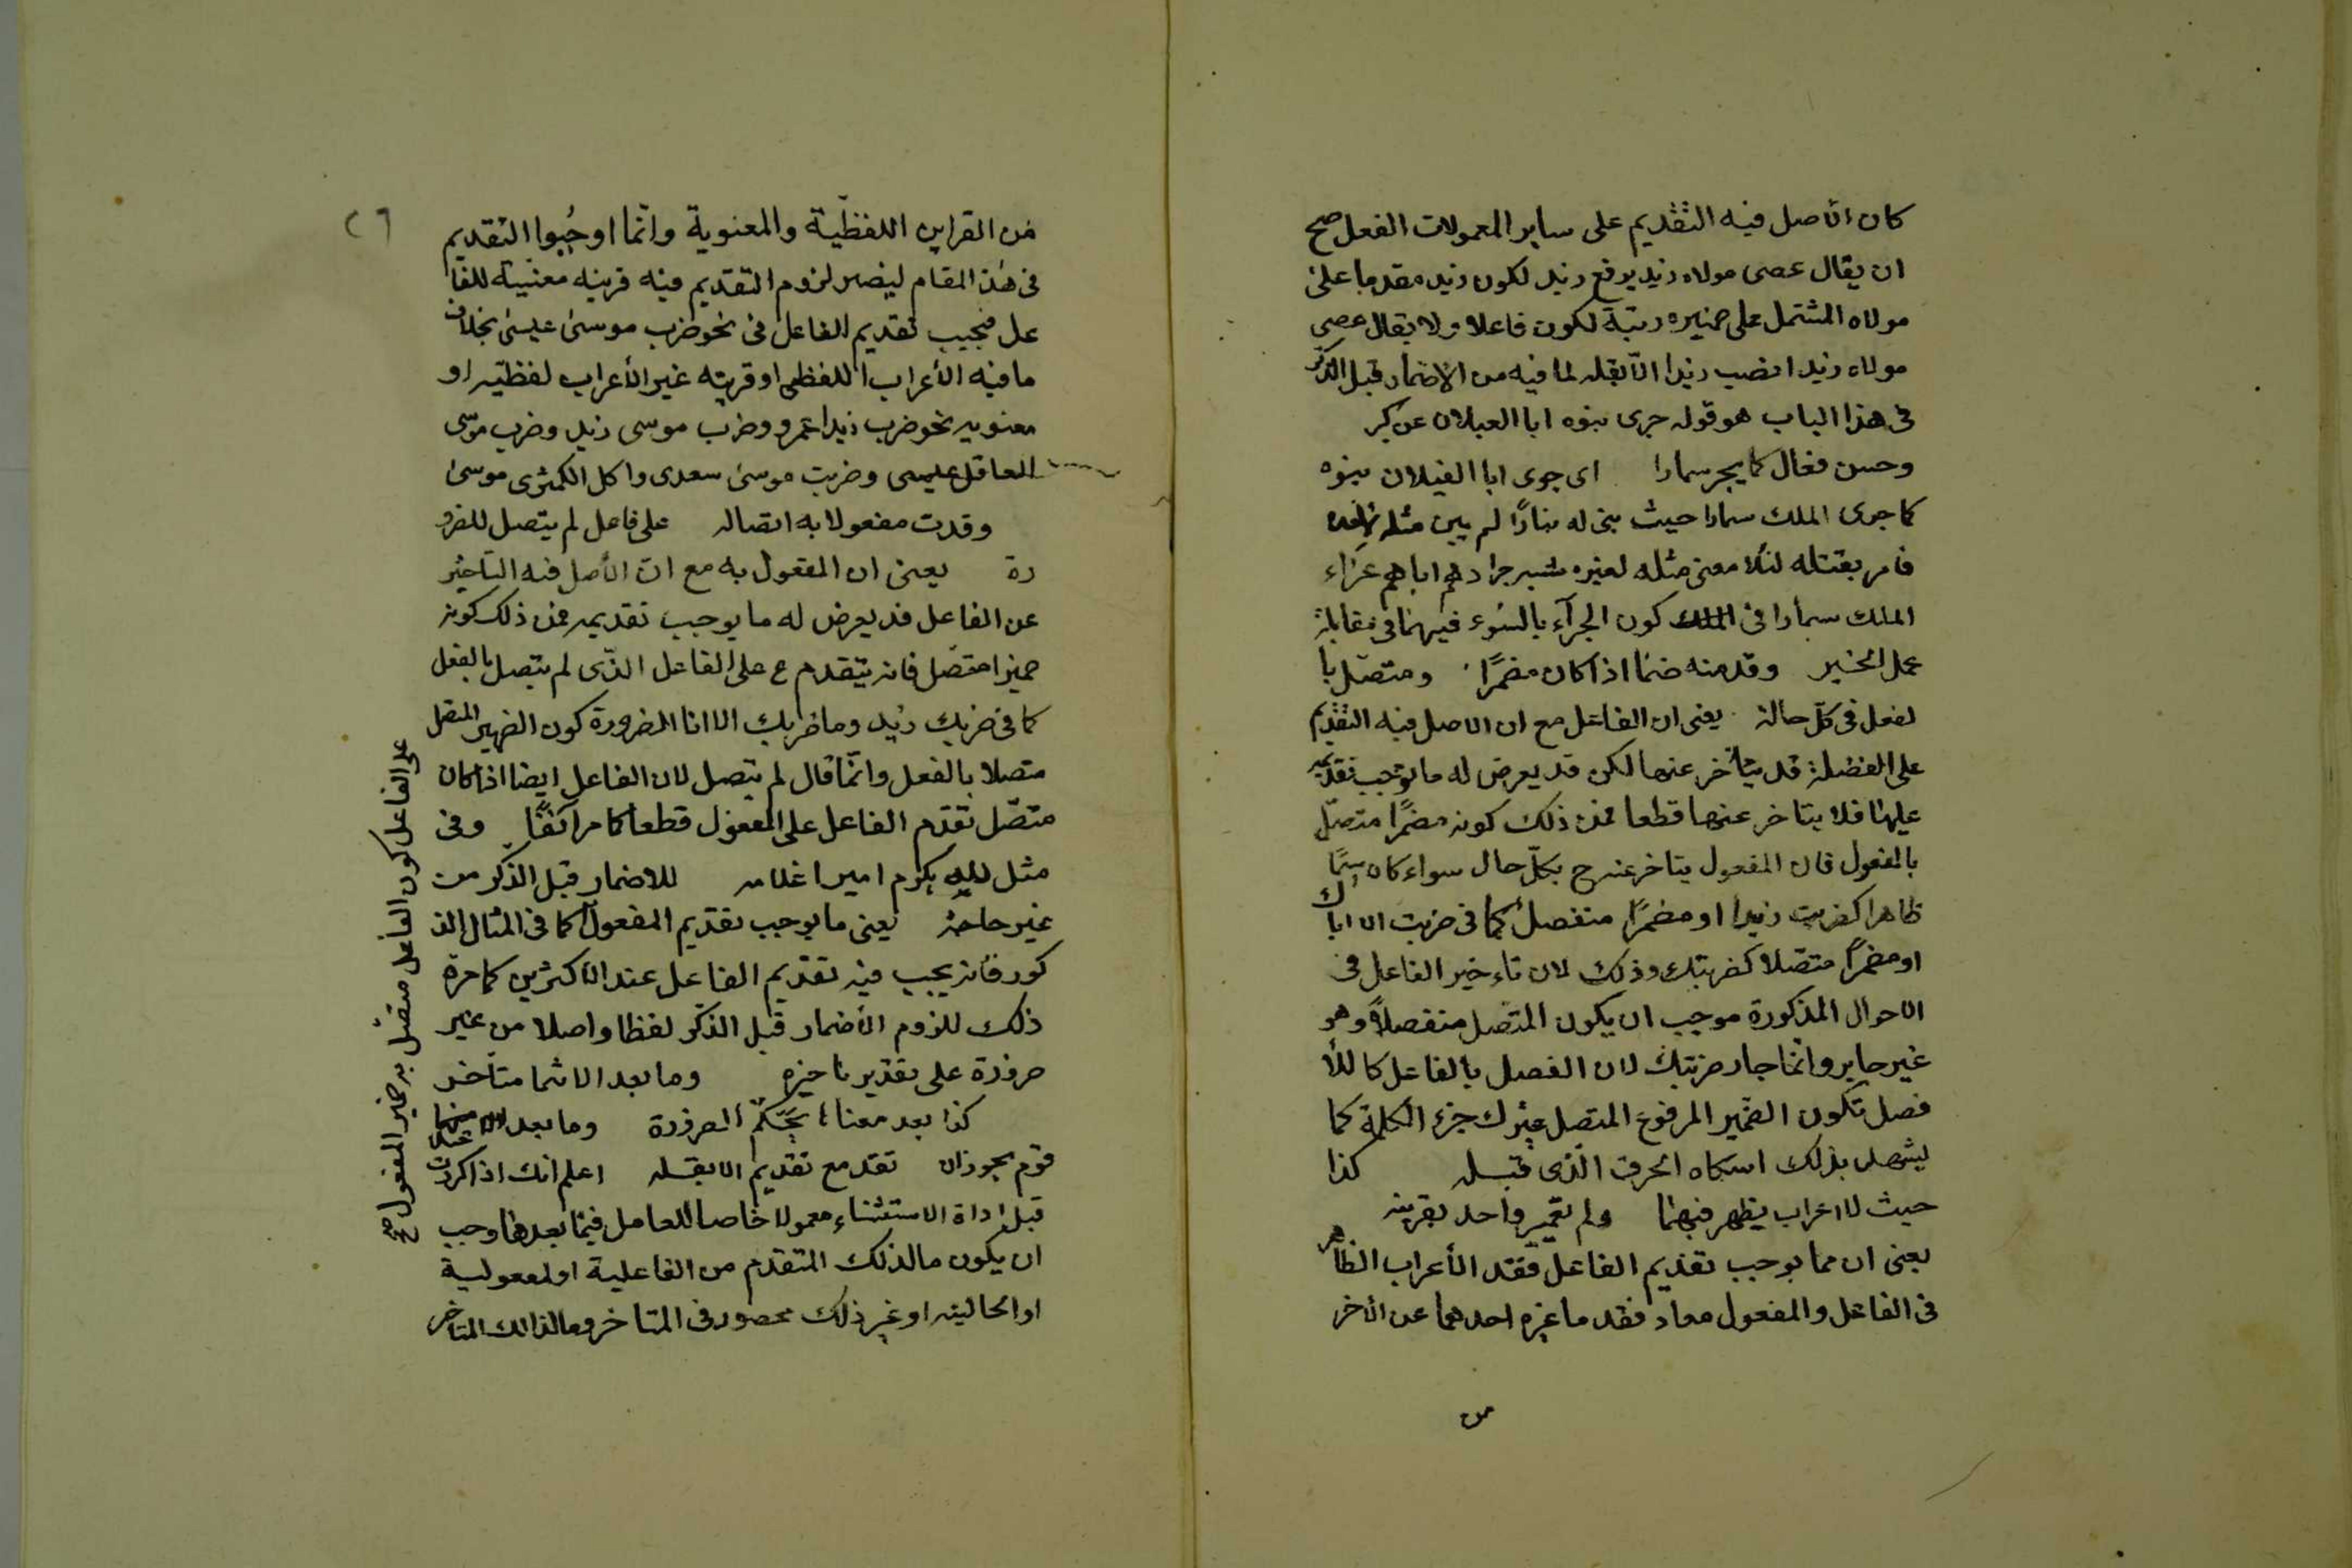 كان الأصل فيه التقديم على ساير المعمولات الفعل صح
ان يقال عصى مولاه زيد برفع زيد لكون زيد مقدما على
مولاه المشتمل على ضميره رتبة لكون فاعلا ولا يقال عصى
مولاه زيدا نصب زيدا الا بقله لما فيه من الاضمار قبل الذكر
فى هذا الباب هو قوله جزى بنوه ابا العيلان عن كبر
وحسن فعال كما يجز سمارا اى جزى ابا الغيلان بنوه
كما جزى الملك سمارا حيث بنى له منارًا لم يبن مثله
فامر بقتله لئلا مثله لغيره جزاءهم اباهم جزاء
الملك سمارا فى كون الجزآء بالسوء فيهما فى مقابلة
عمل الخير وقدمنه ضمنا اذا كان مضمرًا ومتصل با
لفعل فى كل حالة يعنى ان الفاعل مع ان الاصل فيه التقديم
على الفضلة قد يتأخر عنها لكن قد يعرض له ما يوجب تقديمه
عليها فلا يتاخر عنها قطعا فمن ذلك كونه مضمرًا متصل
بالفعول فان المفعول يتاخر عنه ح بكل حال سواء كان سمًا
ظاهرا كضربت زيدا او مضمرًا منفصل كما فى ضربت الا اياك
او مضمرًا متصلا كضربتك وذلك لان تاءخير الفاعل فى
الاحوال المذكورة موجب ان يكون المتصل منفصلاً وهو
غير جايز وانما جاز ضربتك لان الفصل بالفاعل كاللا
فصل تكون الضمير المرفوع المتصل جزء الكلمة كما
ليشهد بذلك اسكاه الحرف الذى قبله كذا
حيث لا اعراب يظهر فيهما ولم تميز واحد بقرينه
يعنى ان مما يوجب تقديم الفاعل فقد الأعراب الظاهر
فى الفاعل والمفعول معا وفقد ما يميزه احدهما عن الأخر
من
٢٦
من القراين اللفظية والمعنوية وانما اوجبوا التقديم
فى هذا المقام ليصير لزوم التقديم فيه قرينه معنيية للفا
عل فيجب تقديم الفاعل فى نحو ضرب موسى عيسى بخلاف
ما فيه الأعراب اللفظى او قرينه غير الأعراب لفظيه او
معنويه نحو ضرب زيدا عمرو وضرب موسى زيد وضرب موسى
العاقل عيسى وضربت موسى سعدى واكل الكمثرى موسى
وقدت مفعولا به اتصاله على فاعل لم يتصل للضرو
رة يعنى ان المفعول به مع ان الأصل فيه التأخير
عن الفاعل قد يعرض له ما يوجب تقديمه فمن ذلك كونه
ضميرا متصل فانه يتقدم ع على الفاعل الذى لم يتصل بالفعل
كما فى ضربك زيد وما ضربك الا انا الضرورة كون الضمير المتصل
متصلا بالفعل وانما قال لم يتصل لان الفاعل ايضا اذا كان
متصل تقدم الفاعل على المفعول قطعا كما مر آنفًا وفى
مثل يكرم اميرا غلامه للاضمار قبل الذكر من
غير حاجة يعنى ما يوجب تقديم المفعول كما فى المثال المذ
كور فانه يجب فيه تقديم الفاعل عند الأكثرين كما مرة
ذلك للزوم الأضمار قبل الذكر لفظا واصلا من غير
ضرورة على تقدير تاخيره وما بعد الا انما متأخر
كذا بعد معناه يحكم الضرورة وما بعد عند
قوم يجوزان تقد مع تقديم الا بقله اعلم انك اذا كررت
قبل اداة الاستثناء معمولا خاصا للعامل فيما بعدها وجب
ان يكون ما لذلك المتقدم من الفاعلية او المفعولية
او الحاليه او غير ذلك محصور فى المتاخر وما لذلك المتاخر
على الفاعل كون الفاعل متصل به ضمير المفعول صح